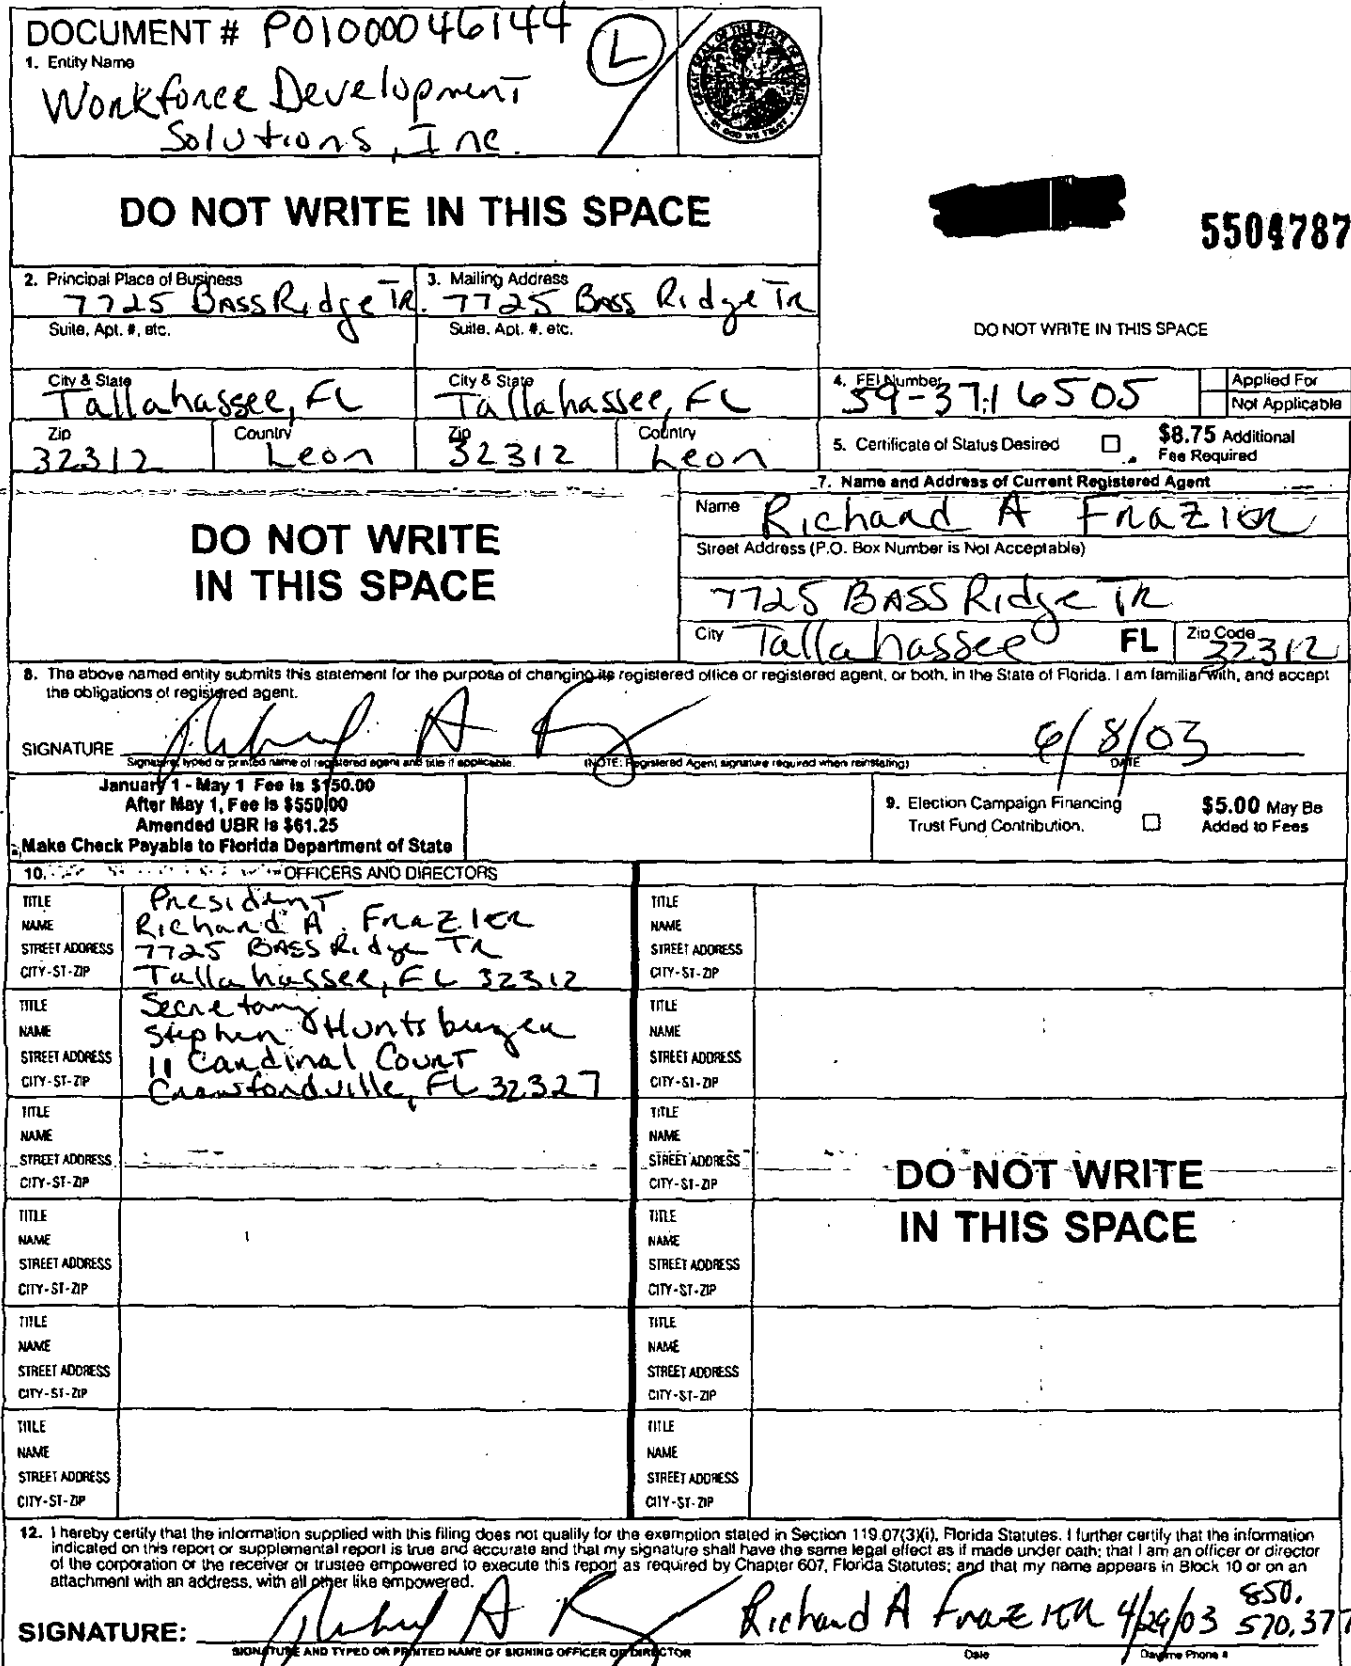 DOCUMENT # P01000046144
L
1. Entity Name
Workforce Development
Solutions, Inc.
GREAT SEAL OF THE STATE OF FLORIDA
IN GOD WE TRUST
DO NOT WRITE IN THIS SPACE
5504787
2. Principal Place of Business
7725 BASS Ridge TR.
3. Mailing Address
7725 BASS Ridge TR
Suite, Apt. #, etc.
Suite, Apt. #, etc.
DO NOT WRITE IN THIS SPACE
City & State
Tallahassee, FL
City & State
Tallahassee, FL
4. FEI Number
59-3716505
Applied For
Not Applicable
Zip
32312
Country
Leon
Zip
32312
Country
Leon
5. Certificate of Status Desired
$8.75 Additional
Fee Required
DO NOT WRITE
IN THIS SPACE
7. Name and Address of Current Registered Agent
Name Richard A Frazier
Street Address (P.O. Box Number is Not Acceptable)
7725 BASS Ridge TR
City Tallahassee FL Zip Code 32312
8. The above named entity submits this statement for the purpose of changing its registered office or registered agent, or both, in the State of Florida. I am familiar with, and accept
the obligations of registered agent.
SIGNATURE 6/8/03
Signature, typed or printed name of registered agent and title if applicable. (NOTE: Registered Agent signature required when reinstating) DATE
January 1 - May 1 Fee is $150.00
After May 1, Fee is $550.00
Amended UBR is $61.25
Make Check Payable to Florida Department of State
9. Election Campaign Financing
Trust Fund Contribution.
$5.00 May Be
Added to Fees
10. OFFICERS AND DIRECTORS
TITLE President
NAME Richard A. Frazier
STREET ADDRESS 7725 BASS Ridge TR
CITY-ST-ZIP Tallahassee, FL 32312
TITLE
NAME
STREET ADDRESS
CITY-ST-ZIP
TITLE Secretary
NAME Stephen Huntsburger
STREET ADDRESS 11 Cardinal Court
CITY-ST-ZIP Crawfordville, FL 32327
TITLE
NAME
STREET ADDRESS
CITY-ST-ZIP
TITLE
NAME
STREET ADDRESS
CITY-ST-ZIP
TITLE
NAME
STREET ADDRESS
CITY-ST-ZIP
DO NOT WRITE
IN THIS SPACE
TITLE
NAME
STREET ADDRESS
CITY-ST-ZIP
TITLE
NAME
STREET ADDRESS
CITY-ST-ZIP
TITLE
NAME
STREET ADDRESS
CITY-ST-ZIP
TITLE
NAME
STREET ADDRESS
CITY-ST-ZIP
TITLE
NAME
STREET ADDRESS
CITY-ST-ZIP
TITLE
NAME
STREET ADDRESS
CITY-ST-ZIP
12. I hereby certify that the information supplied with this filing does not qualify for the exemption stated in Section 119.07(3)(i), Florida Statutes. I further certify that the information
indicated on this report or supplemental report is true and accurate and that my signature shall have the same legal effect as if made under oath; that I am an officer or director
of the corporation or the receiver or trustee empowered to execute this report as required by Chapter 607, Florida Statutes; and that my name appears in Block 10 or on an
attachment with an address, with all other like empowered.
SIGNATURE: Richard A Frazier 4/29/03 850. 570.377
SIGNATURE AND TYPED OR PRINTED NAME OF SIGNING OFFICER OR DIRECTOR Date Daytime Phone #